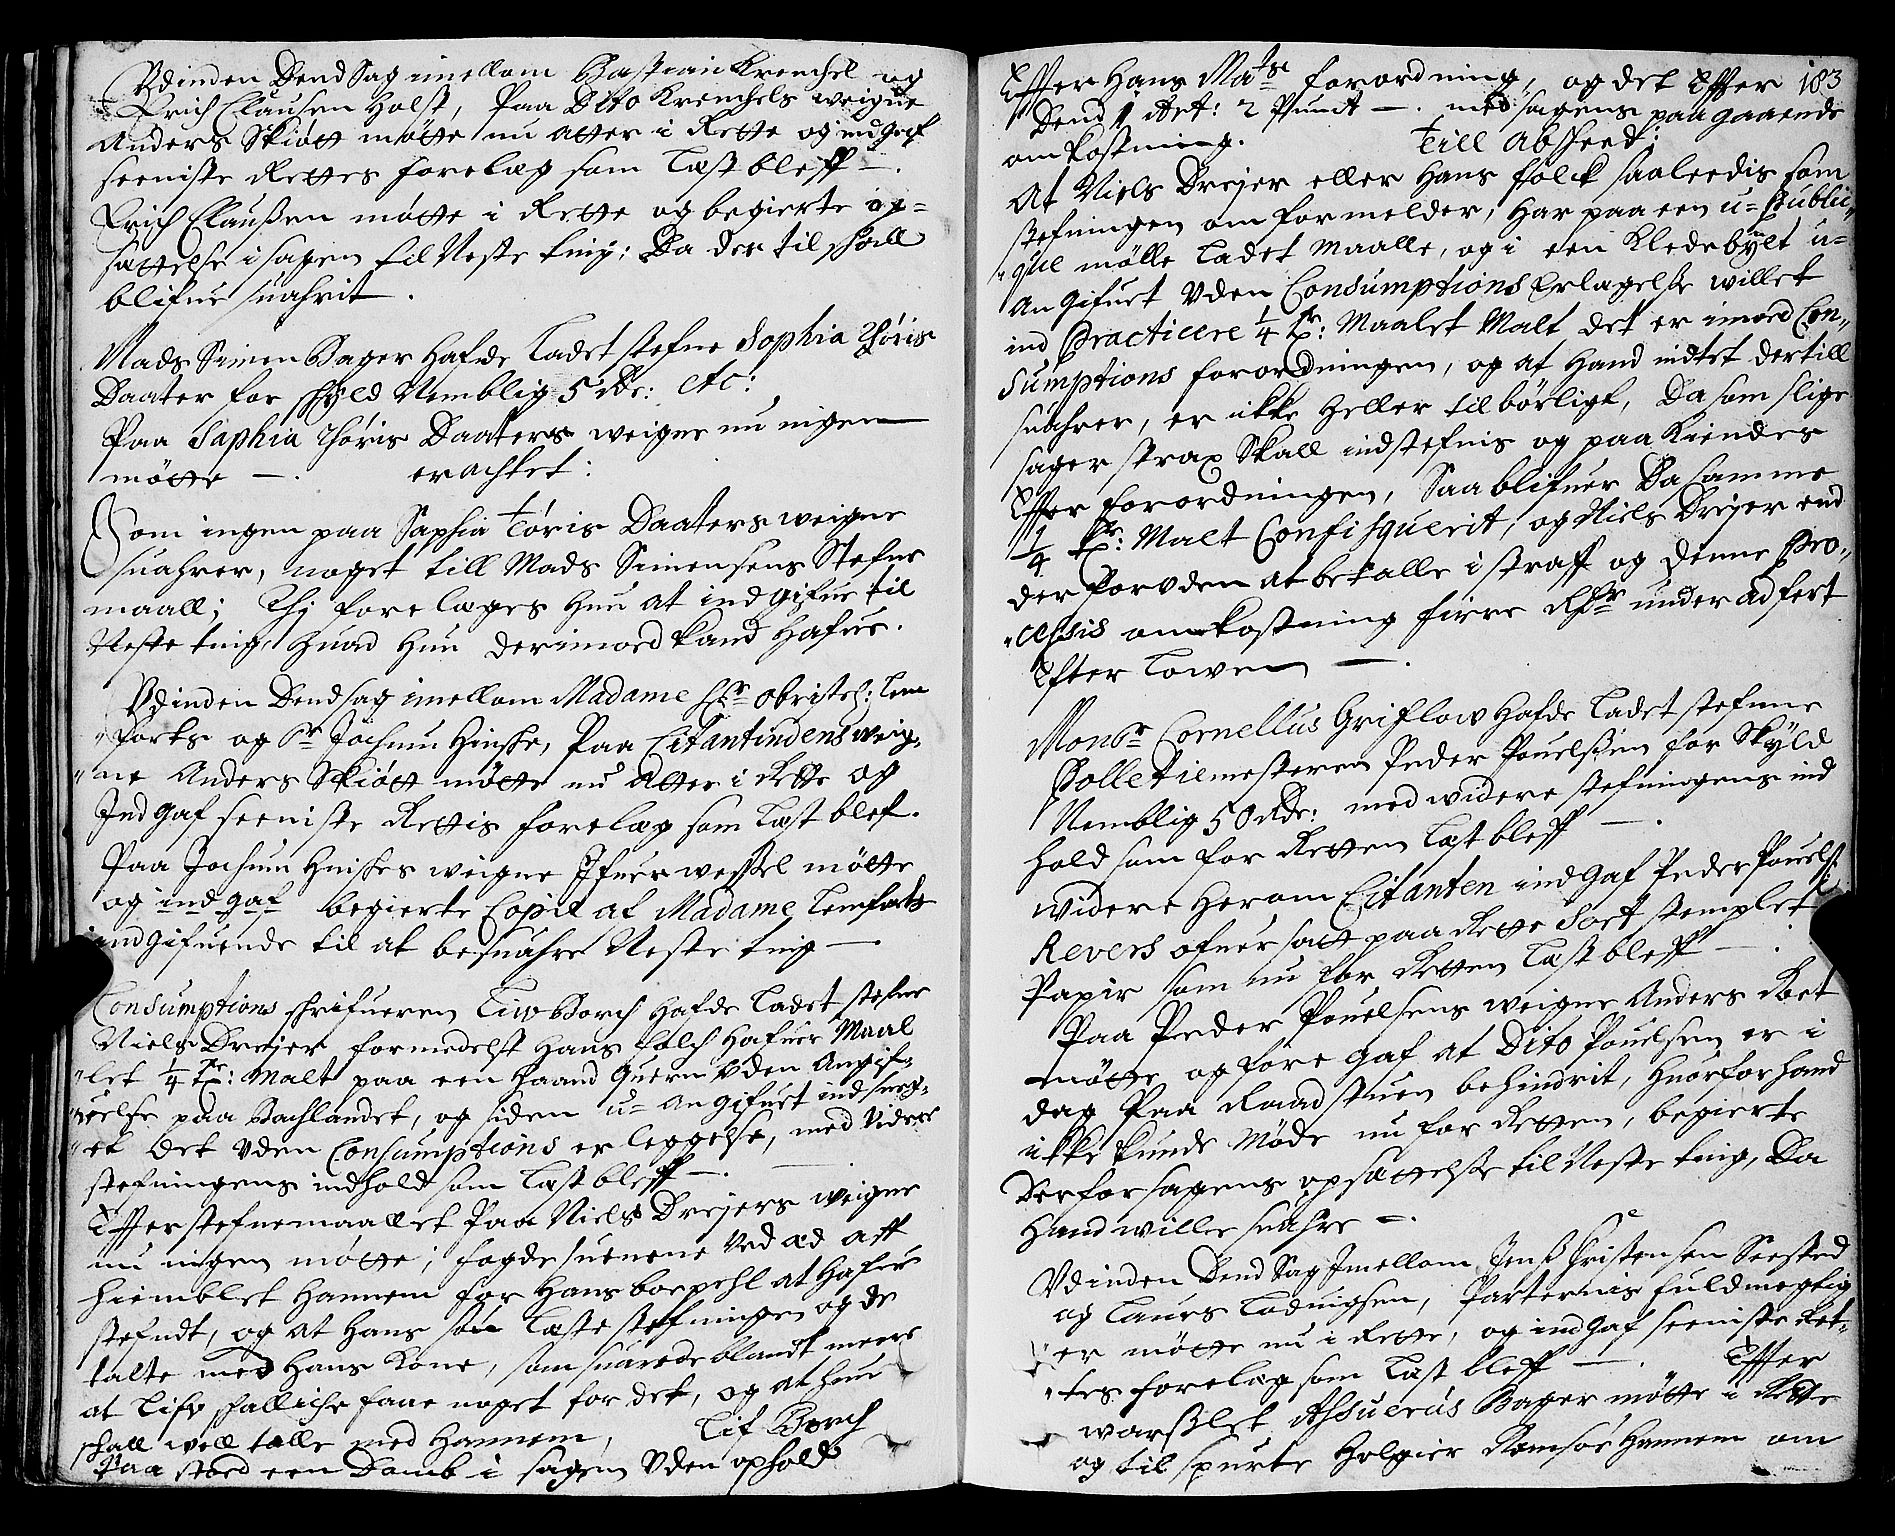 Vdinden Dend Sag imellom Bastian Krenchel og
Erich Clausen Holst, Paa Dito Krenchels weigne
Anders Skiøtt møtte nu atter i Rette og ind gaf
seeniste Rettes forelæg som læst bleff —.
Erich Claussen møtte i Rette og begierte op=
sættelse i sagen til Neste ting: Da der til skall
blifue suahrit.
Mads Simen Bager Hafde ladet stefne Sophia Thöris
Daater for skyld Nemblig 5 Rdr: etc:
Paa Saphia Thöris Daaters weigne nu ingen
møtte —. erachtet:
Som ingen paa Saphia Töris Daaters weigne
suahrer, noget till Mads Simensens Stefne
maall; Thj forelæges Hun at indgifue til
Neste ting, Huad Hun derimoed kand Hafue.
Vdinden Dend sag imellom Madame Hr Obristel: Lem
forts og Sr Jochum Hinske, Paa Citantindens weig,,
,,ne Anders Skiøtt møtte nu atter i Rette og
Ind gaf seeniste Rettis forelæg som læst blef.
Paa Jochum Hinskes weigne Ifuer wessel møtte
og ind gaf begierte Copie af Madame Lemforts
indgifuende til at besuahre Neste ting —.
Consumptions skrifueren Liw Borch Hafde ladet stefne
Niels Drejer formedelst Hans folch Hafuer Maal
,,let 1/4 tr: Malt paa een Haand Quern Vden Angif=
,,uelse paa Bachlandet, og siden u= angifuet ind
,,et det Vden Consumptions erleggelse, med Videre
stefningens indhold som læst bleff —.
Effter stefnemaallet Paa Niels Drejers weigne
nu ingen møtte; fogdesuenene Ved æd aff
Hiemblet Hannem for Hans boepehl at Hafue
stefndt, og at Hans søn læste stefningen og de
talte med Hans Kone, som suarede blandt meere
at Lify skalliche faae noget for det, og at hun
skall well talle med Hannem, Lif Borch
Paa stoed een Domb i sagen Vden ophold
Effter Hans Mats forordning, og det Effter 183
Dend 1 Art: 2 Punct —. med sagens paagaaende
omkostning. Till Afskeed;
At Niels Drejer eller Hans folck saaleedis som
stefningen omformelder, Har paa een u= Publi,,
,,que mølle ladet Maalle, og i een Kledebylt u=
angifuet Vden Consumptions Erlagelse willet
ind Practicere 1/4 tr: Maalet Malt det er imoed Con,,
sumptions forordningen, og at Hand intet dertill
suahrer, er ikke Heller tilbørligt, Da som slige
sager strax Skall indstefnis og paa Kiendes
Effter forordningen, Saa blifuer Da samme
1/4 tr: Malt Confisquerit, og Niels Drejer end
der foruden at betalle i straff og denne Pro,,
,,cessis omkostning firre Rdr under adfert
Efter Lowen —.
Monsr Cornellus Griflow Hafde ladet stefnne
Rolle Tilmesteren Peder Pouelssen for Skyld
Nemblig 50 Rdr: med widere stefningens ind
hold som for Retten læst bleff —.
widere Herom Citanten ind Gaf Peder Pouels:
Revers ofuersatt paa Rette sort stemplet
Papir som nu for Retten læst bleff —.
Paa Peder Pouelsens weigne Anders Roet
møtte og fore gaf at Dito Pouelsen er i
dag Paa Raadstuen behindrit, Huorfor Hand
ikke kunde Møde nu for Retten, begierte
Derfor sagens opsættelse til Neste ting, Da
Hand wille suahre —.
Vdinden Dend Sag Imellom Jens Christensen Seested
og Laurs Lodvigsen, Parternis fuldmegtig
,,er møtte nu i Rette, og indgaf seeniste Ret,,
,,tes forelæg som læst bleff —. Effter
warsslet Assuerus Bager møtte i Rette
og til spurte Holgier Romsøe Hannem om